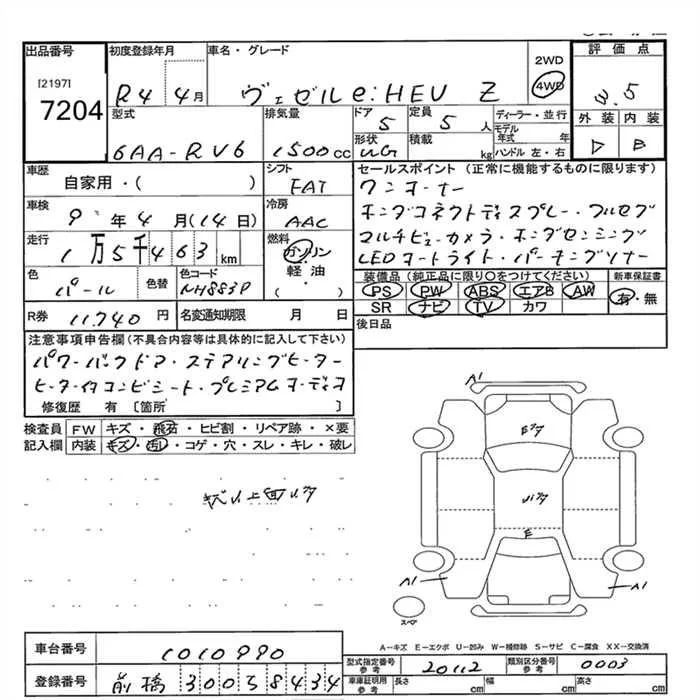 出品番号
[2197]
7204
初度登録年月
R4 4月
車名・グレード
ヴェゼル e:HEV Z
2WD
4WD
評価点
3.5
外装 内装
B
型式
6AA-RV6
排気量
1500cc
ドア
5
形状
定員
5人
積載
kg
ディーラー・並行
モデル年式 年
ハンドル 左・右
車歴
自家用・( )
シフト
FAT
セールスポイント(正常に機能するものに限ります)
ワンオーナー
ホンダコネクトディスプレー・フルセグ
マルチビューカメラ・ホンダセンシング
LEDオートライト・パーキングソナー
車検
9年4月(14日)
冷房
AAC
走行
1万5千463km
燃料
ガソリン
軽油
( )
色
パール
色替
色コード
NH883P
装備品(純正品に限り○をつけてください)
PS PW ABS エアB AW
SR ナビ TV カワ
新車保証書
有・無
R券 11,740円
名変通知期限 月 日
後日品
注意事項申告欄(不具合内容等は具体的に記入して下さい)
パワーバックドア・ステアリングヒーター
ヒーター付コンビシート・プレミアムオーディオ
修復歴 有〔箇所 〕
検査員記入欄
FW キズ・飛石・ヒビ割・リペア跡・×要
内装 キズ・汚れ・コゲ・穴・スレ・キレ・破レ
A1
E
A1
A1
スペア
A-キズ E-エクボ U-凹み W-補修跡 S-サビ C-腐食 XX-交換済
車台番号 1010990
登録番号 前橋 300 S 8434
型式指定番号 参考 20112
類別区分番号 参考 0003
車庫証明用 参考
長さ cm
幅 cm
高さ cm